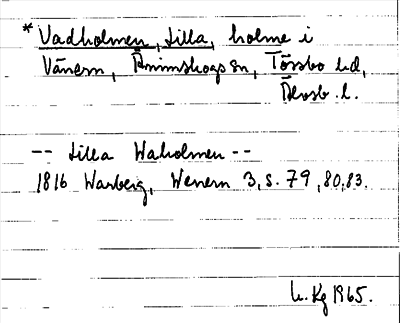 * Vadholmen, Lilla, holme i
Vänern, Ånimskogs sn, Tössbo hd,
Älvsb. l.
-- Lilla Waholmen --
1816 Warberg, Wenern 3, s. 79, 80, 83.
U. Kg 1965.